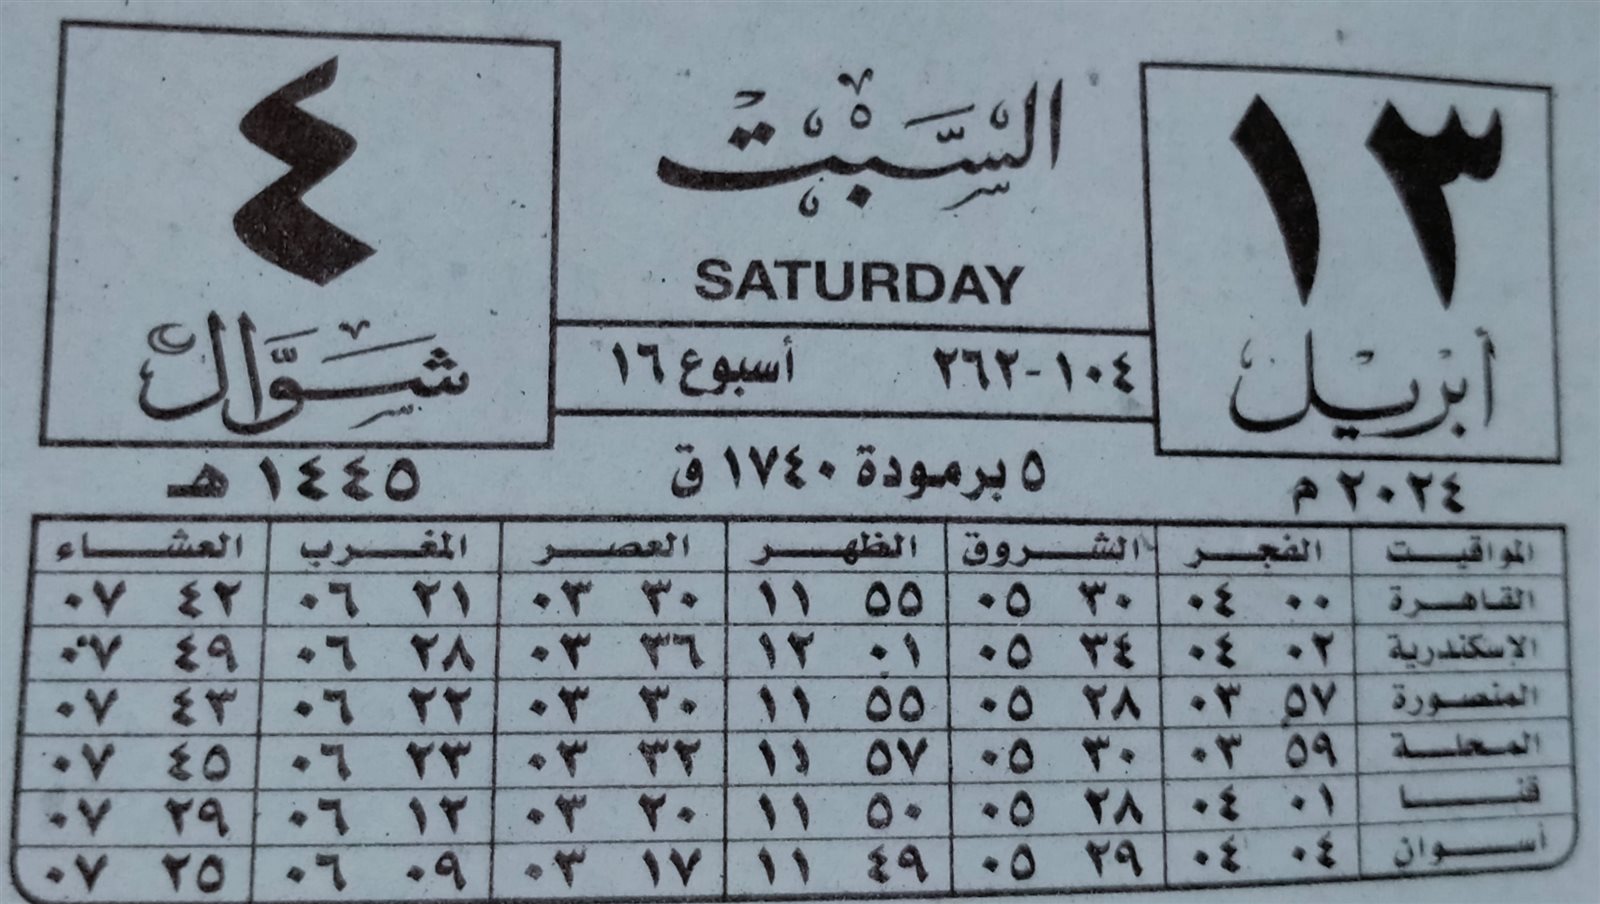 ١٣ السبت ٤
أبريل SATURDAY شوال
١٠٤-٢٦٢ أسبوع ١٦
٢٠٢٤ م ٥ برمودة ١٧٤٠ ق ١٤٤٥ هـ
المواقيت الفجر الشروق الظهر العصر المغرب العشاء
القاهرة ٠٠ ٠٤ ٣٠ ٠٥ ٥٥ ١١ ٣٠ ٠٣ ٢١ ٠٦ ٤٢ ٠٧
الإسكندرية ٠٢ ٠٤ ٣٤ ٠٥ ٠١ ١٢ ٣٦ ٠٣ ٢٨ ٠٦ ٤٩ ٠٧
المنصورة ٥٧ ٠٣ ٢٨ ٠٥ ٥٥ ١١ ٣٠ ٠٣ ٢٢ ٠٦ ٤٣ ٠٧
المحلة ٥٩ ٠٣ ٣٠ ٠٥ ٥٧ ١١ ٣٢ ٠٣ ٢٣ ٠٦ ٤٥ ٠٧
قنا ٠١ ٠٤ ٢٨ ٠٥ ٥٠ ١١ ٢٠ ٠٣ ١٢ ٠٦ ٢٩ ٠٧
أسوان ٠٤ ٠٤ ٢٩ ٠٥ ٤٩ ١١ ١٧ ٠٣ ٠٩ ٠٦ ٢٥ ٠٧